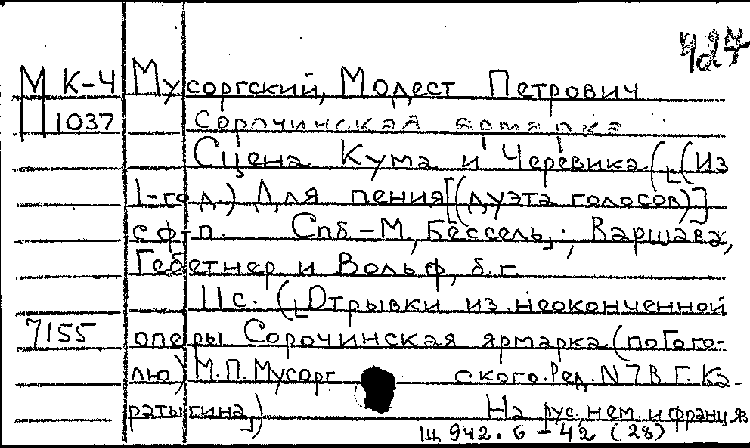 427
М К-4 Мусоргский, Модест Петрович
П 1037 Сорочинская ярмарка
Сцена Кума и Черевика. ([(Из
1-го д.) Для пения [(дуэта голосов)]
с ф-п. Спб-М, Бессель,; Варшава,
Гебетнер и Вольф, б.г.
11с. ([Отрывки из неоконченной
7155 оперы Сорочинская ярмарка (по Гого-
лю) М.П.Мусоргского. Ред. В.Г. Ка-
ратыгина,) На рус. нем. и франц. яз
Щ 942.6-42 (28)